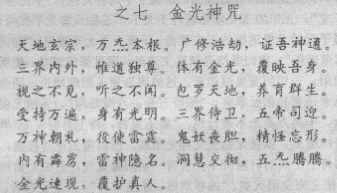 之七 金光神咒
天地玄宗，万炁本根。广修浩劫，证吾神通。
三界内外，惟道独尊。体有金光，覆映吾身。
视之不见，听之不闻。包罗天地，养育群生。
受持万遍，身有光明。三界侍卫，五帝司迎。
万神朝礼，役使雷霆。鬼妖丧胆，精怪忘形。
内有霹雳，雷神隐名。洞慧交彻，五炁腾腾。
金光速现，覆护真人。